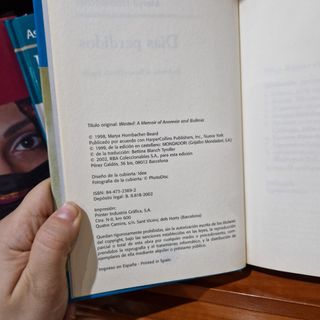 Título original: Wasted: A Memoir of Anorexia and Bulimia
© 1998, Marya Hornbacher-Beard
Publicado por acuerdo con HarperCollins Publishers, Inc., Nueva York
© 1999, de la edición en castellano: MONDADORI (Grijalbo Mondadori, S.A.)
© de la traducción: Bettina Blanch Tyroller
© 2002, RBA Coleccionables, S.A., para esta edición
Pérez Galdós, 36 bis, 08012 Barcelona
Diseño de la cubierta: Idee
Fotografía de la cubierta: © PhotoDisc
ISBN: 84-473-2369-2
Depósito legal: B. 8.618-2002
Impresión:
Printer Industria Gráfica, S.A.
Ctra. N-II, km 600
Quatre Camins, s/n. Sant Vicenç dels Horts (Barcelona)
Quedan rigurosamente prohibidas, sin la autorización escrita de los titulares
del copyright, bajo las sanciones establecidas en las leyes, la reproducción
parcial o total de esta obra por cualquier medio o procedimiento, com-
prendidos la reprografía y el tratamiento informático, y la distribución de
ejemplares de ella mediante alquiler o préstamo público.
Impreso en España - Printed in Spain
Días perdidos